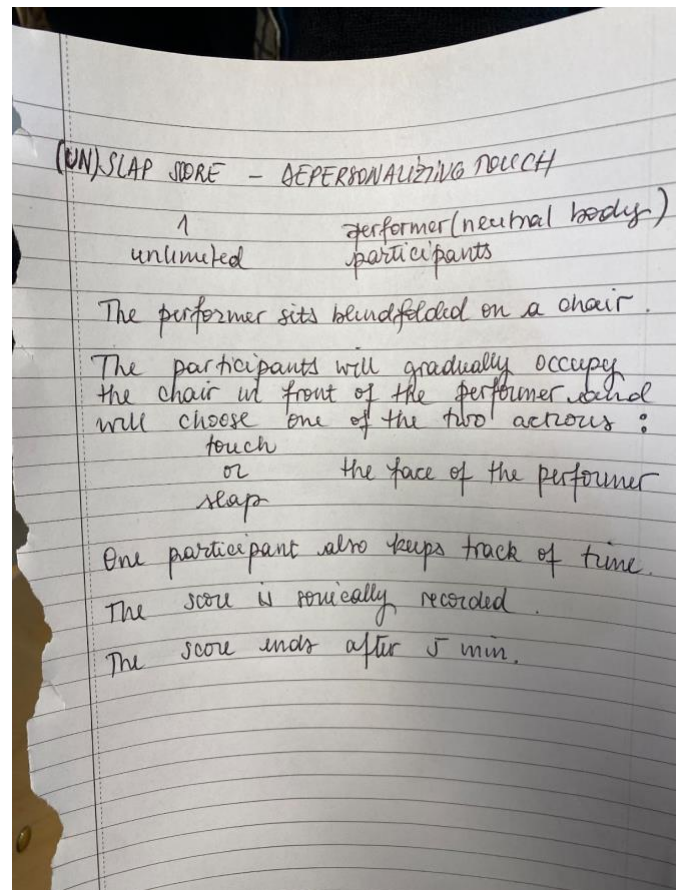 (UN)SLAP SCORE - DEPERSONALIZING TOUCH
1 performer (neutral body)
unlimited participants
The performer sits blindfolded on a chair.
The participants will gradually occupy
the chair in front of the performer and
will choose one of the two actions:
touch
or the face of the performer
slap
One participant also keeps track of time.
The score is sonically recorded.
The score ends after 5 min.